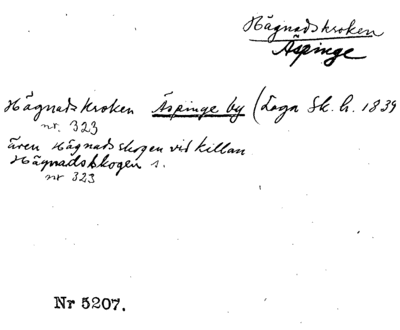 Hägnadskroken
Äspinge
Hägnadskroken Äspinge by (Laga Sk. h. 1839
nr. 323
även Hägnadskogen vid killan
Hägnadskogen 1.
nr 323
Nr 5207.